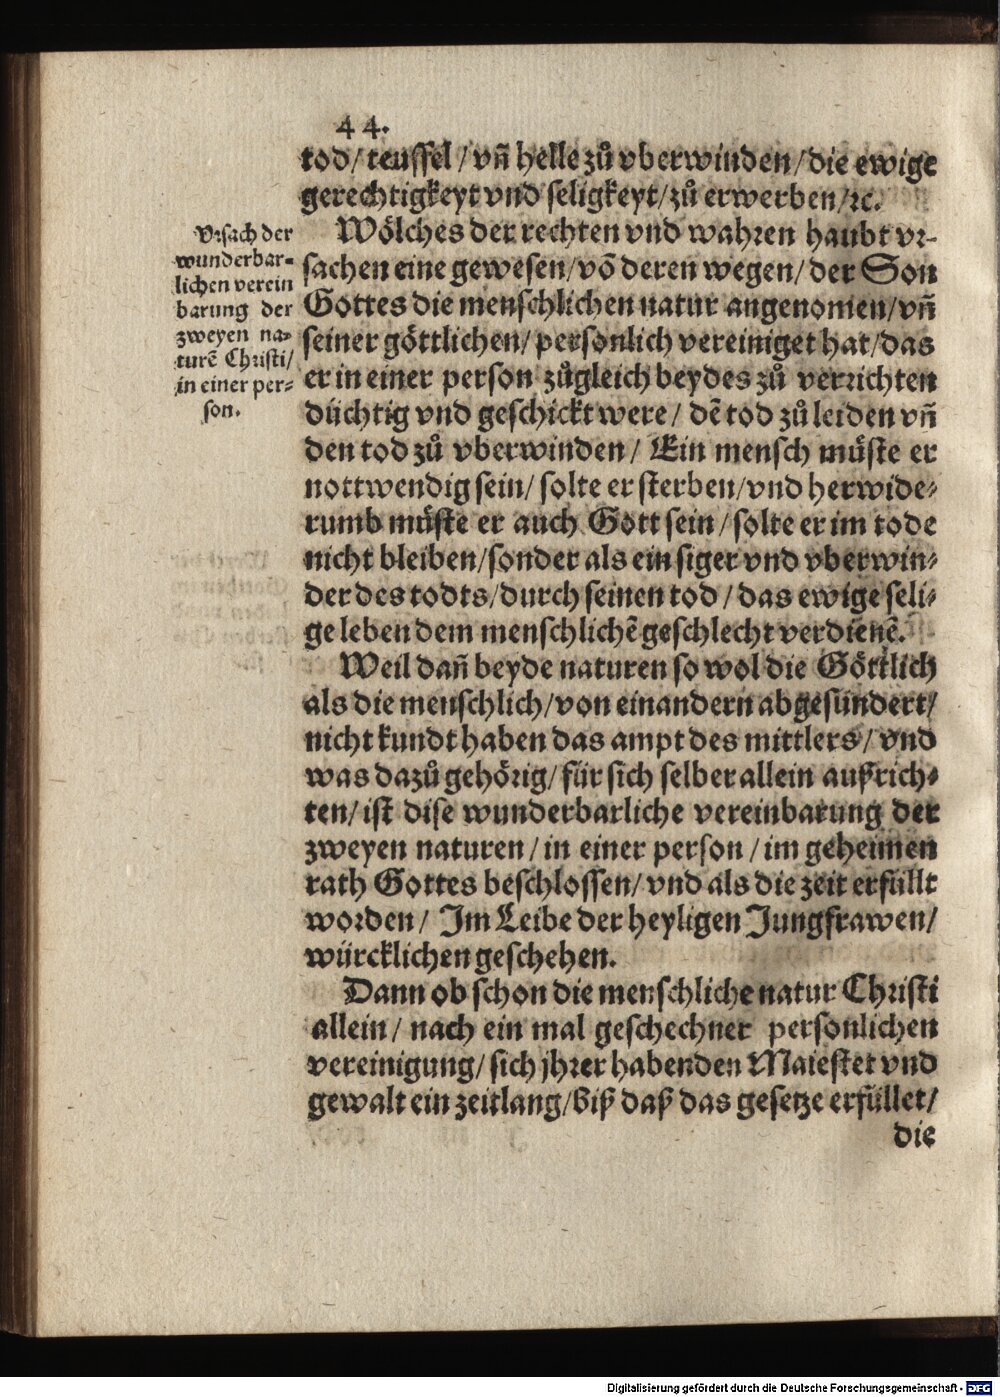 44.
tod/ teuffel/ vn̄ helle zů vberwinden/ die ewige
gerechtigkeyt vnd seligkeyt/ zů erwerben/ ꝛc.
Vrsach der
wunderbar-
lichen verein
barung der
zweyen na-
turē Christi/
in einer per-
son.
Wölches der rechten vnd wahren haubt vr-
sachen eine gewesen/ vō deren wegen/ der Son
Gottes die menschlichen natur angenomen/ vn̄
seiner göttlichen/ persönlich vereiniget hat/ das
er in einer person zůgleich beydes zů verrichten
düchtig vnd geschickt were/ dē tod zů leiden vn̄
den tod zů vberwinden/ Ein mensch müste er
nottwendig sein/ solte er sterben/ vnd herwide-
rumb müste er auch Gott sein/ solte er im tode
nicht bleiben/ sonder als ein siger vnd vberwin-
der des todts/ durch seinen tod/ das ewige seli-
ge leben dem menschlichē geschlecht verdienē.
Weil dan̄ beyde naturen so wol die Göttlich
als die menschlich/ von einandern abgesündert/
nicht kundt haben das ampt des mittlers/ vnd
was dazů gehörig/ für sich selber allein auffrich-
ten/ ist dise wunderbarliche vereinbarung der
zweyen naturen/ in einer person/ im geheimen
rath Gottes beschlossen/ vnd als die zeit erfüllt
worden/ Im Leibe der heyligen Jungfrawen/
würcklichen geschehen.
Dann ob schon die menschliche natur Christi
allein/ nach ein mal geschechner persönlichen
vereinigung/ sich jhrer habenden Maiestet vnd
gewalt ein zeitlang/ biß daß das gesetze erfüllet/
die
Digitalisierung gefördert durch die Deutsche Forschungsgemeinschaft - DFG